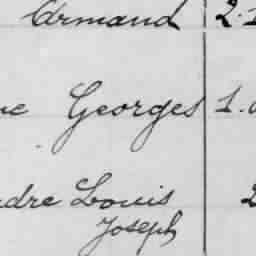 Armand 2.
Georges 1.
dre Louis 2
Joseph